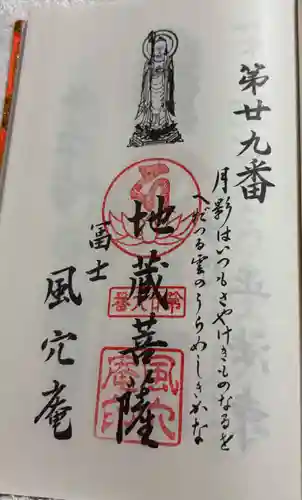 第廿九番
月影はいつもさやけきものなるを
へだつる雲のうらめしきかな
地蔵菩薩
冨士
風穴庵
風穴
庵印